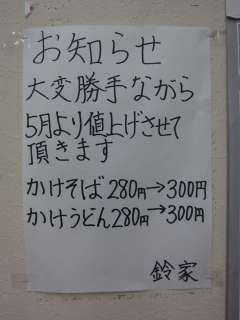 お知らせ
大変勝手ながら
5月より値上げさせて
頂きます
かけそば280円→300円
かけうどん280円→300円
鈴家